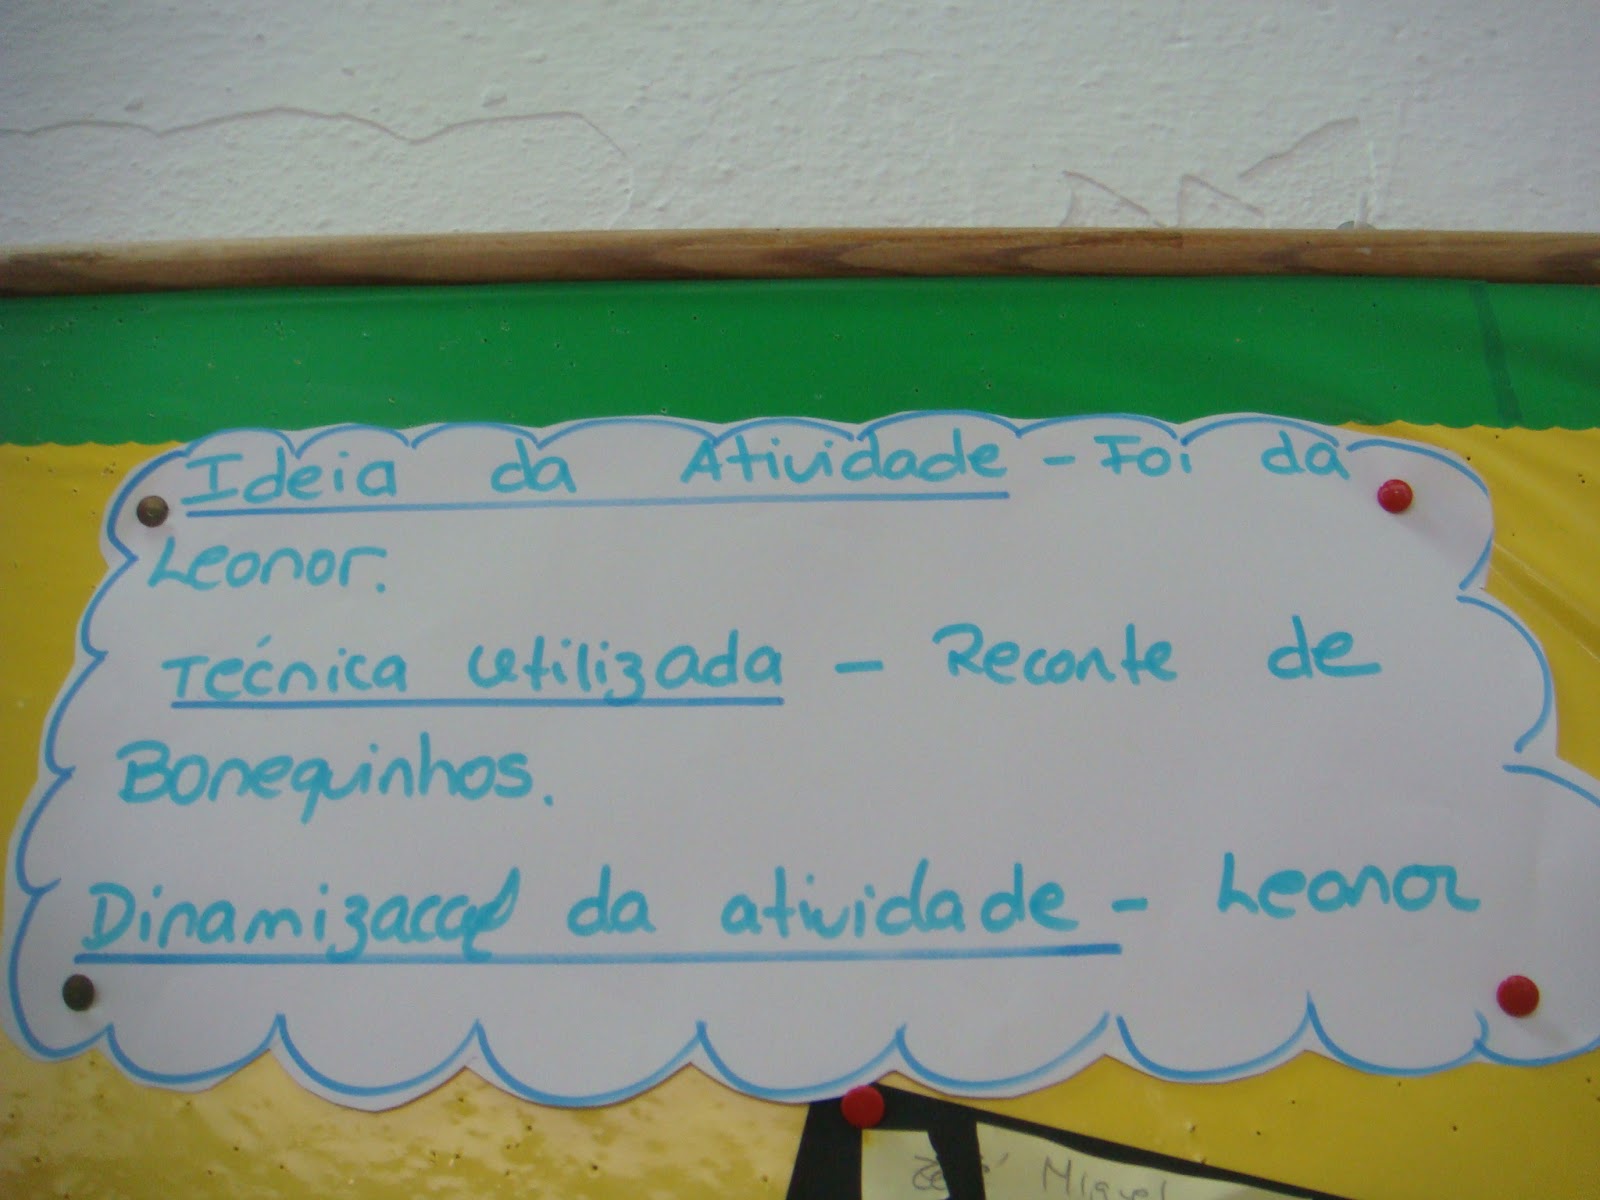 Ideia da Atividade - Foi da
Leonor.
Técnica utilizada - Reconte de
Bonequinhos.
Dinamizaçao da atividade - Leonor
Miguel